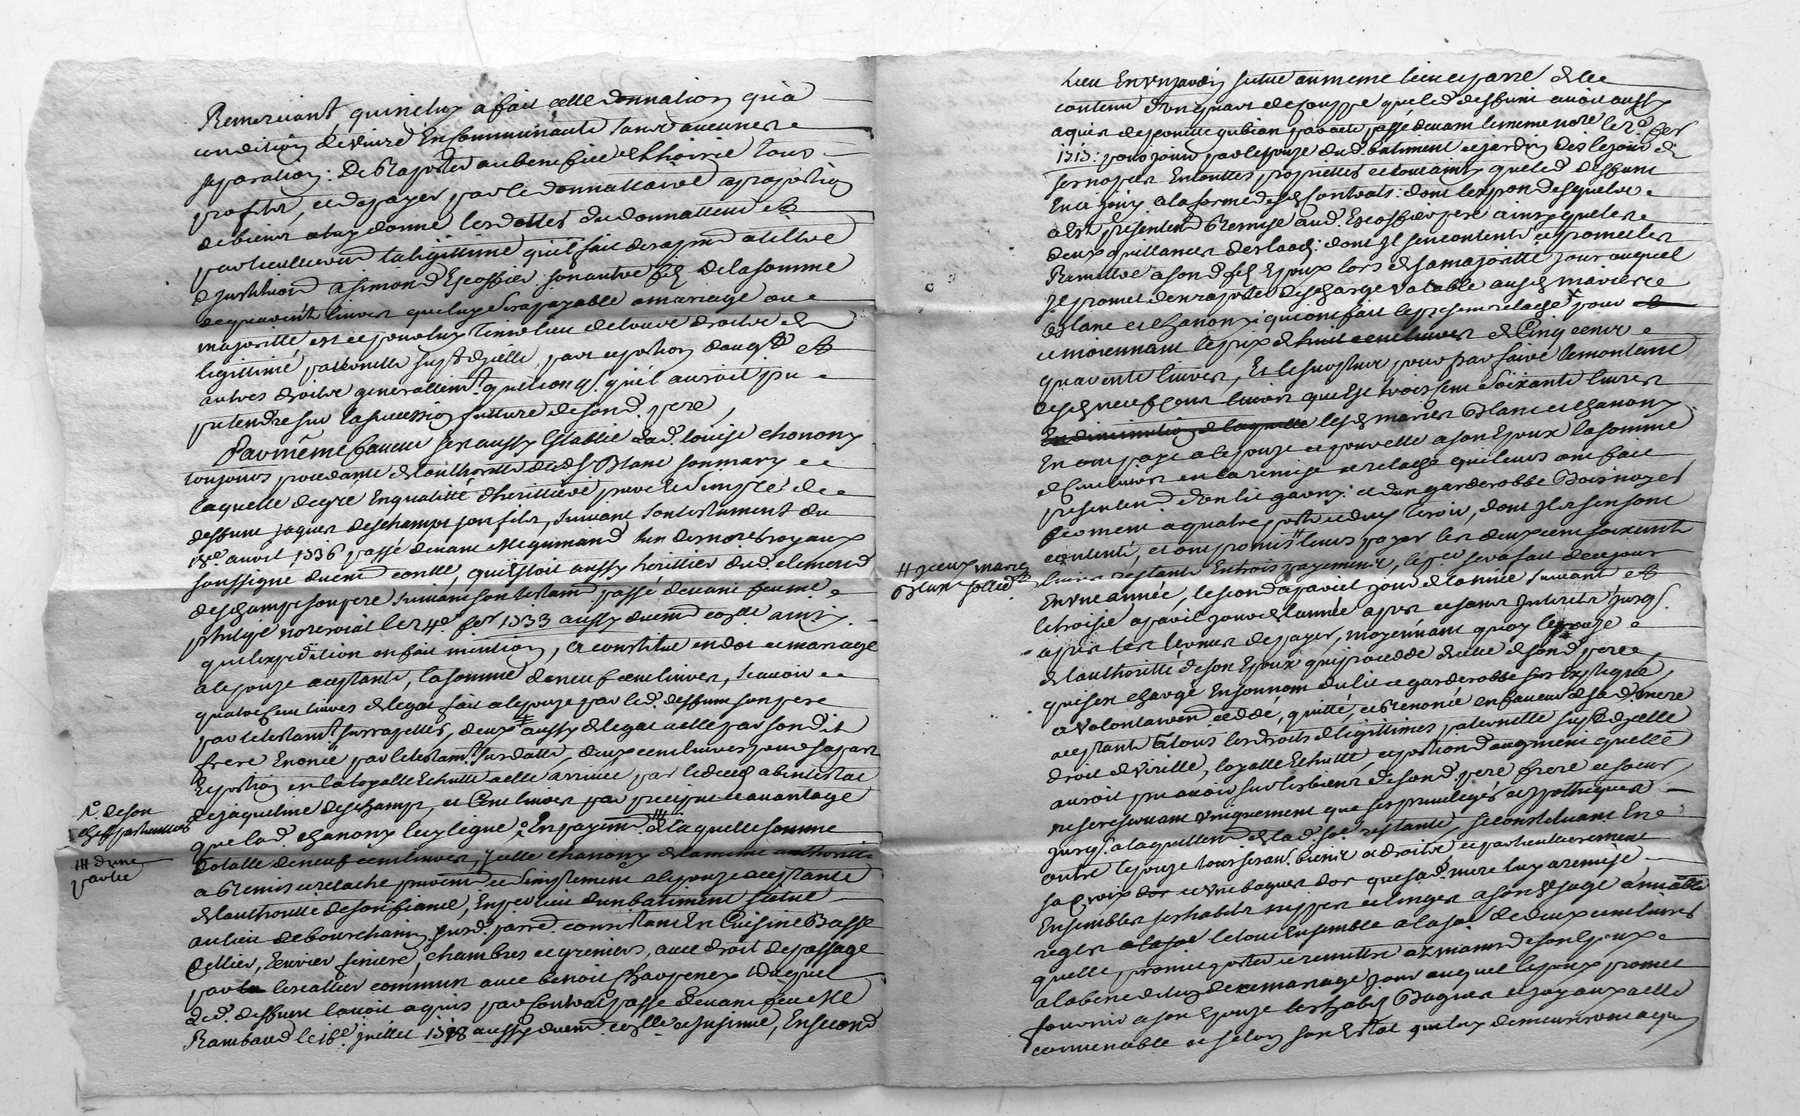 Remerciant, qui luy a fait cette donnation qu'a
condition de vivre En Communauté sans aucune
separation: De Raporter au benefice de l'hoirie tous
profits, et de payer par le donnattaire a proportion
de biens a luy donné les dettes du donnatteur et
particullierem.t la legittime qu'il fait des a pnt a tiltre
d'Institution a Simond Escoffier son autre fils de la somme
de quarente livres que luy sera payable a mariage ou
majorité et ce pour luy tenir lieu de tous droits de
legittime paternelle supt d'jcelle, part et portion d'augt et
autres droits generallem.t quelconqs. qu'il auroit pu
pretendre sur la sucession future de son d. pere,
Par même faveur s'est aussy Establie lad. louise chanony
toujours procedante de l'authorité dud. S. Blanc son mary
laquelle de gré En qualitté d'heritiere pure et simple de
deffunt jaques deschamps son fils, suivant son testament du
avril 1736 passé devant Me guimand un des nores royaux
soussigné duem.t conllé, qu'Estoit aussy heritier dud. clemend
deschamps son pere suivant son testam.t passé devant feu me
philipe nore royal le 24e fer 1733 aussy duem.t conllé ainsy
que l'expedition en fait mention, a constitué en dot et mariage
a lepouze aceptante, la somme de neuf cent livres, scavoir
quatre cent livres de legat fait a lepouze par led. deffunt son pere
par le testamt surrapellé, deux # aussy de legat a elle par sond.it
frere Enoncé par le testam.t surdatté, deux cent livres pour sa part
Et portion en la loyalle Echutte a elle arrivée par le deceds abintestat
de jaqueline deschamps, et Cent livres par preciput et avantage
que lad. chanony luy legue, En payem.t # de laquelle somme
totalle de neuf cent livres, jcelle chanony de la mème authorité
a Remis et relaché purem.t et simplement a lepouze aceptante
de l'authorité de son fiancé, En premier lieu d'un batiment situé
au lieu de bourchany susd. parre. consistant En Cuisine Basse
Cellier, Evrier, feniere, chambres et greniers, avec droit de passage
par lescallier commun avec benoit Chauspenex Duquel
Led. deffunt l'avoit aquis par contrat passé devant feu Me
Rambaud le 16e juillet 1718 aussy duem.t conllé et Insinué, En second
1o de son
chef particulier
# d'une
partie
Lieu En un jardin situé au meme lieu et parre. de la
contenue d'un quart de coupée que led. deffunt avoit aussy
aquis de ponette gubian par acte passé devant le meme nore le 2e fer
1715: pour jouir par lepouze dud. batiment et jardin des le jour de
ses nopces En touttes proprietés et tout ainsy que led. deffunt
En a jouy a la forme desd. contrats: dont l'expedon. desquels
a Esté presentem.t Remise aud. Escoffier pere ainsy que les
deux quittances des laods: dont Il sen contente et promet les
Remettre a sond. fils Epoux lors de sa majorité jour auquel
Il promet d'en raporter descharge valable ausd. mariés
Blanc et chanony qui ont fait le present relaché pour
et moienant le prix de Cinq cent
quarente livres, Et le surplus pour parfaire le montant
desd. neuf cent livres qu'est trois cent soixante livres
lesd. mariés Blanc et chanony
En ont payé a lepouze et pour elle a son Epoux la somme
de Cent livres en la remise et relaché qu'ils leurs ont fait
presentem.t d'un lit garny: et d'un garderobbe Bois noyer
fermant a quatre portes et deux tiroirs, dont Il se sont
contenté, et ont promis # leurs payer les deux cent soixante
livres restants En trois payements, le per sera fait de ce jour
En une année, le second a pareil jour de lannée suivante et
le troisie a pareil jour de lannée apres et sans Interets jusqs.
apres les termes de payer, moyennant quoy lepouze
de lauthorité de son Epoux qui procedde de celle de sond. pere
qui sen charge En son nom du lit et garderobbe sus Expliqué
a volontairem.t ceddé, quitté, et Renoncé en faveur de sad. mere
aceptante a tous les droits de legittimes paternelle supt d'jcelle
droit de virille, loyalle Echutte, et portion d'augment qu'elle
auroit pu avoir sur les biens de sond. pere frere et soeur,
ne se reservant uniquement que ses privileges et hypotheques
jusqs. a laquittem.t de lad. soe. restante, se constituant En
outre lepouze tous ses aus. biens et droits et particulierement
sa Croix et une bague d'or que sad. mere luy a remise
Ensembles ses habits nippes et linges a son usage amiable
reglés a la soe. le tout Ensemble a la soe. de deux cent livres
quelle promet porter et remettre ez mains de son Epoux
a la benediction de ce mariage jour auquel lepoux promet
fournir a son Epouze les habits Bagues et joyaux a elle
convenable et selon son Estat qui luy demeureront aquis
# et ceux mariés
Blanc sollidt.